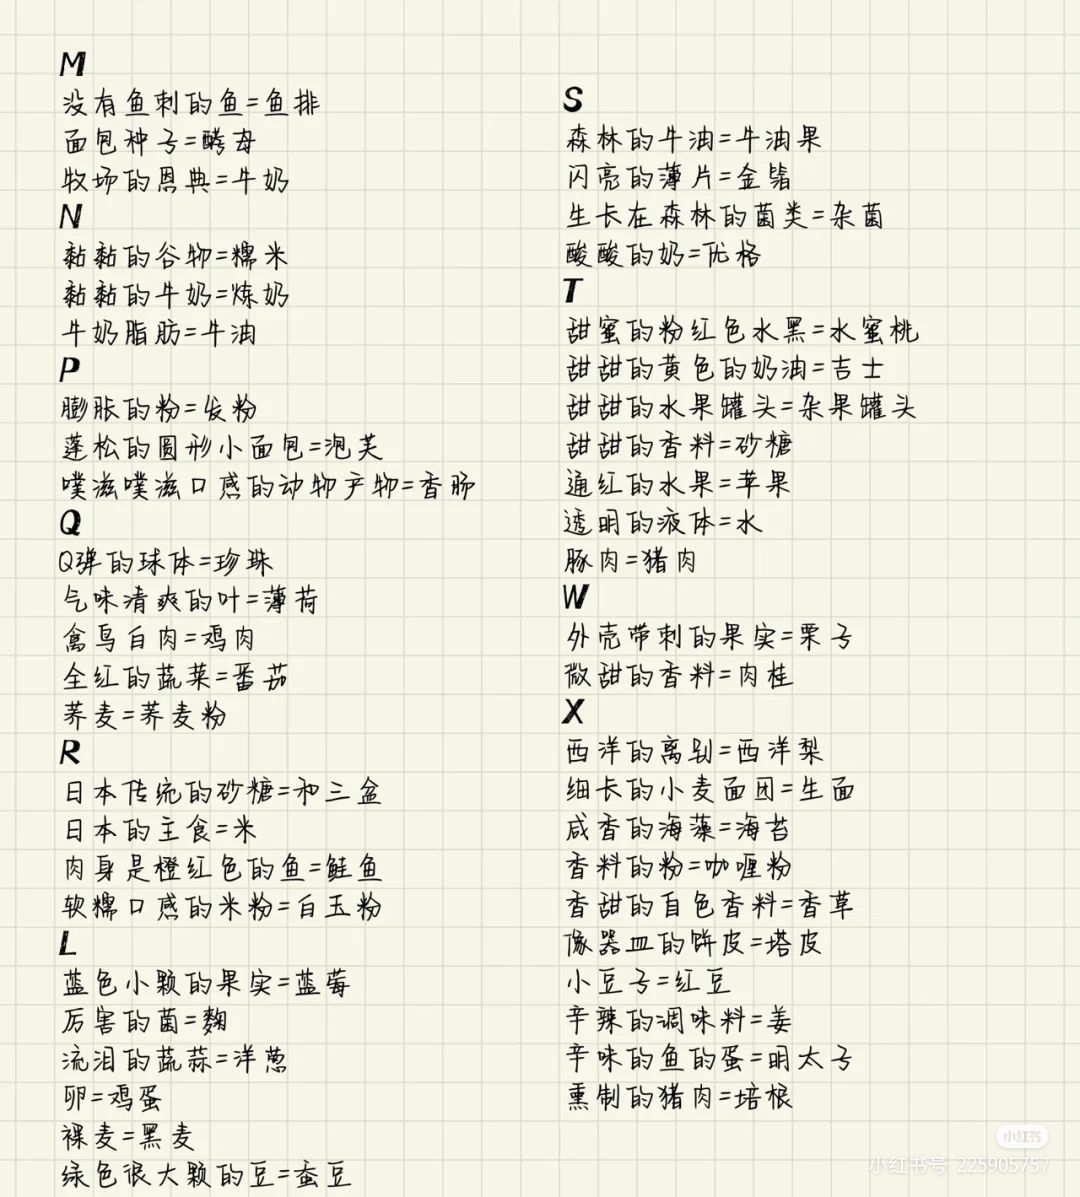 M
没有鱼刺的鱼=鱼排
面包种子=酵母
牧场的恩典=牛奶
N
黏黏的谷物=糯米
黏黏的牛奶=炼奶
牛奶脂肪=牛油
P
膨胀的粉=发粉
蓬松的圆形小面包=泡芙
噗滋噗滋口感的动物产物=香肠
Q
Q弹的球体=珍珠
气味清爽的叶=薄荷
禽鸟白肉=鸡肉
全红的蔬菜=番茄
荞麦=荞麦粉
R
日本传统的砂糖=和三盆
日本的主食=米
肉身是橙红色的鱼=鲑鱼
软糯口感的米粉=白玉粉
L
蓝色小颗的果实=蓝莓
厉害的菌=麴
流泪的蔬蒜=洋葱
卵=鸡蛋
裸麦=黑麦
绿色很大颗的豆=蚕豆
S
森林的牛油=牛油果
闪亮的薄片=金箔
生长在森林的菌类=杂菌
酸酸的奶=优格
T
甜蜜的粉红色水黑=水蜜桃
甜甜的黄色的奶油=吉士
甜甜的水果罐头=杂果罐头
甜甜的香料=砂糖
通红的水果=苹果
透明的液体=水
豚肉=猪肉
W
外壳带刺的果实=栗子
微甜的香料=肉桂
X
西洋的离别=西洋梨
细长的小麦面团=生面
咸香的海藻=海苔
香料的粉=咖喱粉
香甜的自色香料=香草
像器皿的饼皮=塔皮
小豆子=红豆
辛辣的调味料=姜
辛味的鱼的蛋=明太子
熏制的猪肉=培根
小红书
小红书号: 225905757